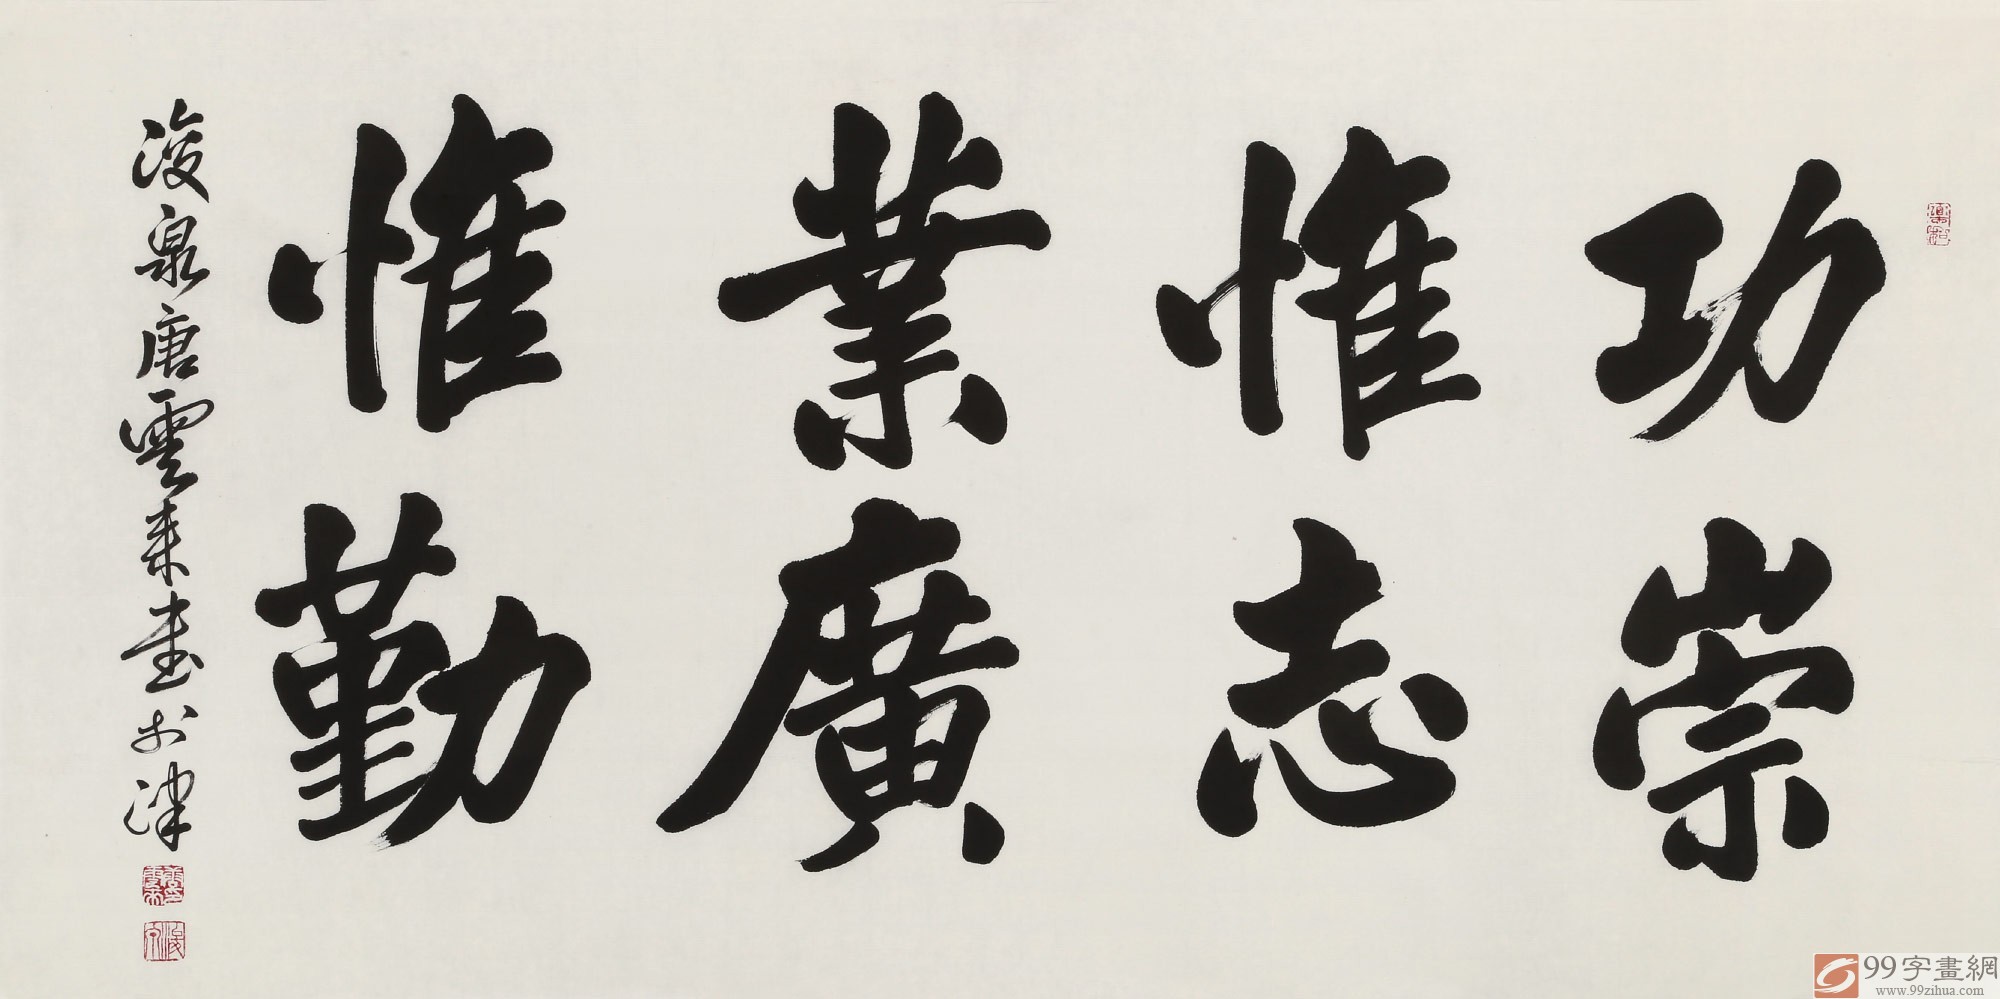 功崇
惟志
業廣
惟勤
浚泉唐雲来书於津
99字畫網
www.99zihua.com